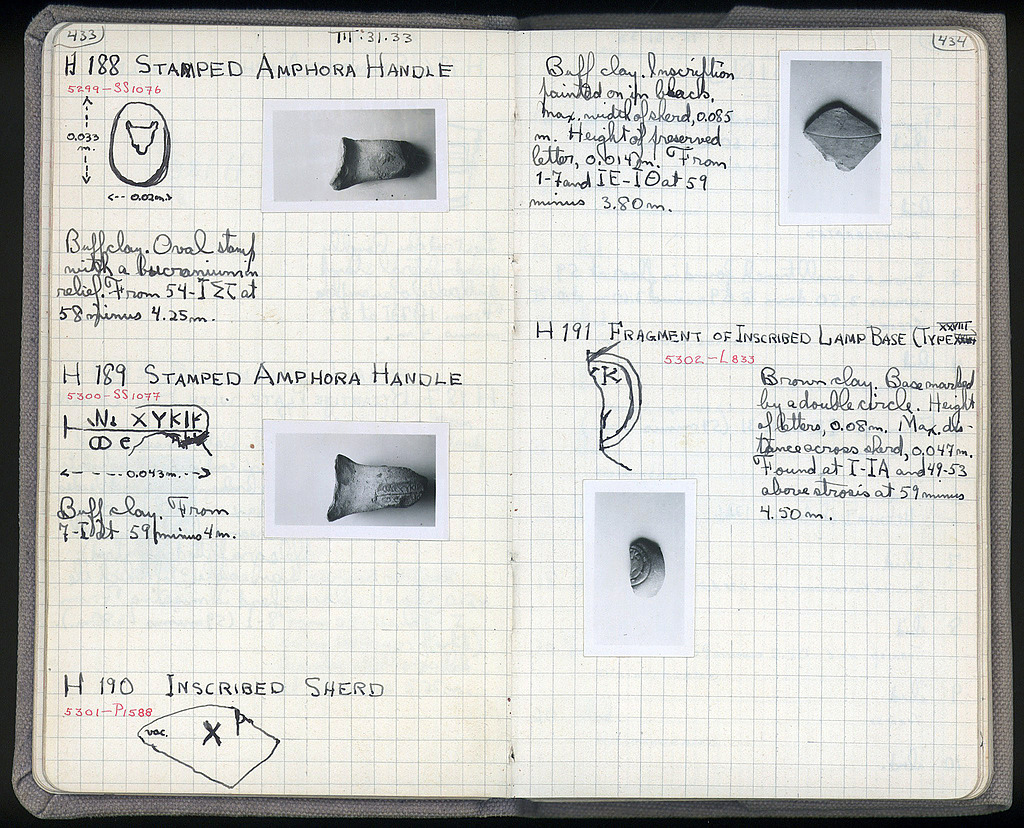 433
III:31.33
H 188 STAMPED AMPHORA HANDLE
5299-SS1076
0.033
m.
<-- 0.02m.>
Buff clay. Oval stamp
with a bucranium in
relief. From 54-IΣΤ at
58 minus 4.25m.
H 189 STAMPED AMPHORA HANDLE
5300-SS1077
<- - - 0.043m. - ->
Buff clay. From
7-I at 59 minus 4m.
H 190 INSCRIBED SHERD
5301-P1588
voc.
X
P
434
Buff clay. Inscription
painted on in black.
Max. width of sherd, 0.085
m. Height of preserved
letter, 0.014m. From
1-7 and IE-IΘ at 59
minus 3.80 m.
H 191 FRAGMENT OF INSCRIBED LAMP BASE (TYPE XXVIII
5302-L833
K
Brown clay. Base marked
by a double circle. Height
of letters, 0.08m. Max. dis-
tance across sherd, 0.047m.
Found at I-IA and 49-53
above strosis at 59 minus
4.50 m.